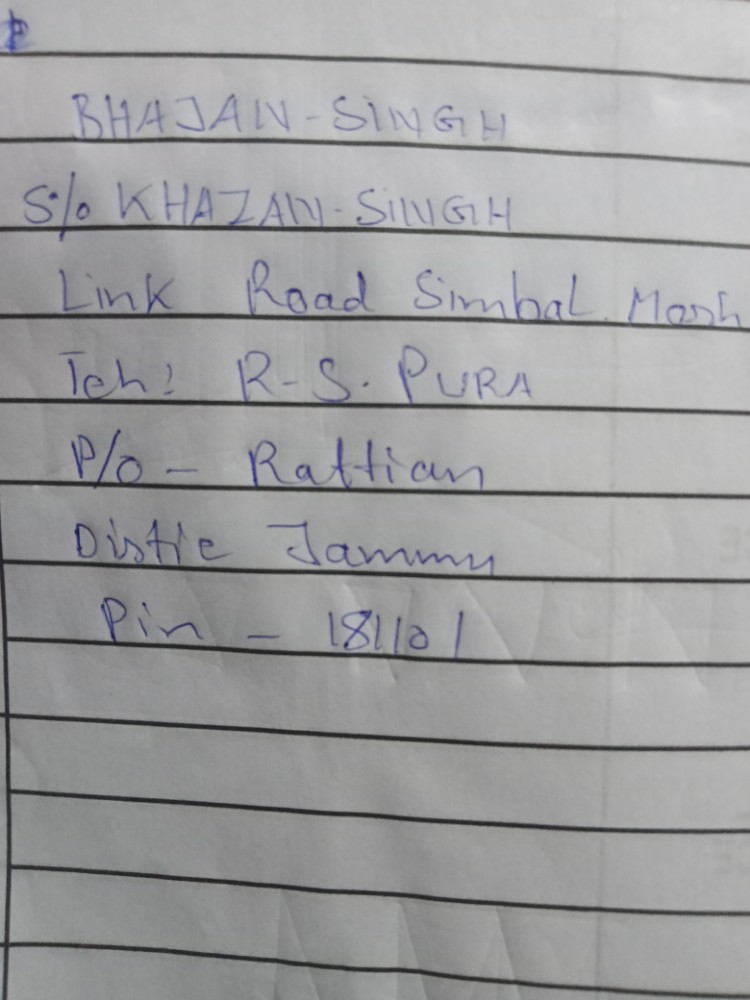 BHAJAN-SINGH
S/o KHAZAN-SINGH
Link Road Simbal
Teh: R-S. PURA
P/o - Rattian
Distic Jammu
Pin - 181101